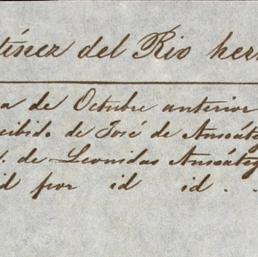 tínez del Rio her
a de Octubre anterior
cibido de José de Ansoáteg
. de Leonidas Ansoáteg
id por id id.